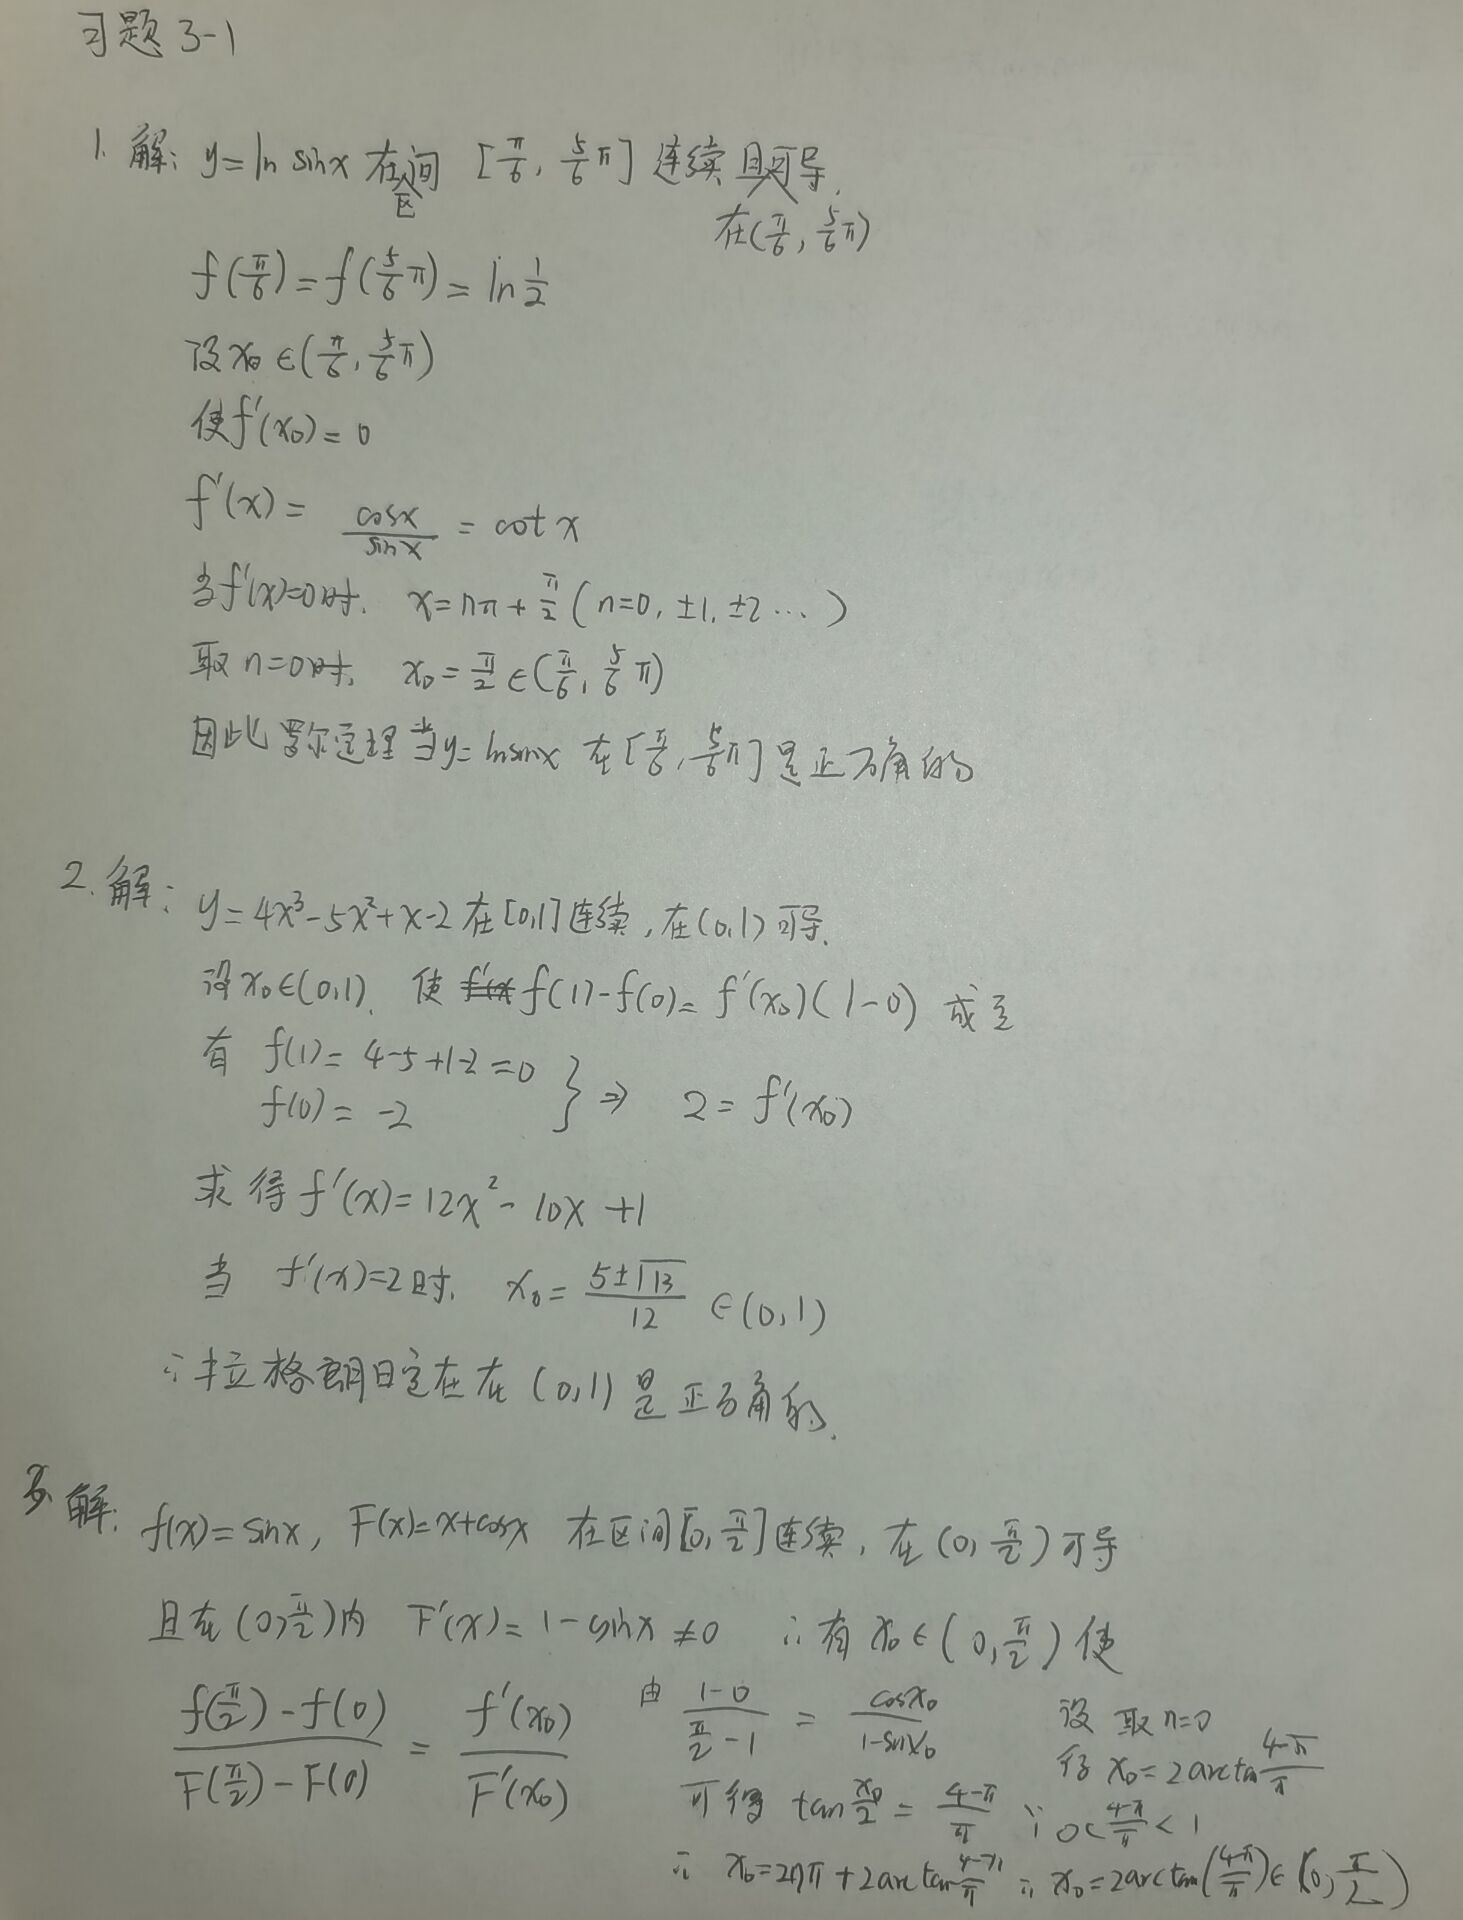 习题3-1
1. 解: y=ln sinx 在区间 [π/6, 5/6 π] 连续且在(π/6, 5/6 π)可导.
f(π/6)=f(5/6 π)=ln 1/2
设x₀∈(π/6, 5/6 π)
使f'(x₀)=0
f'(x)= cosx/sinx = cot x
当f'(x)=0时, x=nπ+π/2 (n=0, ±1, ±2 …)
取n=0时, x₀=π/2∈(π/6, 5/6 π)
因此罗尔定理当y=lnsinx 在[π/6, 5/6 π]是正确的
2. 解: y=4x³-5x²+x-2在[0,1]连续,在(0,1)可导.
设x₀∈(0,1), 使 f(1)-f(0)=f'(x₀)(1-0) 成立
有 f(1)=4-5+1-2=0
f(0)=-2 } ⇒ 2=f'(x₀)
求得f'(x)=12x²-10x+1
当 f'(x)=2时, x₀= (5±√13)/12 ∈(0,1)
∴拉格朗日定在在(0,1)是正确的.
3. 解: f(x)=sinx, F(x)=x+cosx 在区间[0,π/2]连续, 在(0,π/2)可导
且在(0,π/2)内 F'(x)=1-sinx≠0 ∴有x₀∈(0,π/2)使
(f(π/2)-f(0))/(F(π/2)-F(0)) = f'(x₀)/F'(x₀)
由 (1-0)/(π/2-1) = cosx₀/(1-sinx₀)
可得 tan x₀/2 = (4-π)/π
∴ x₀=2nπ+2arctan (4-π)/π
设取n=0
得 x₀=2arctan (4-π)/π
∵ 0<(4-π)/π<1
∴ x₀=2arctan((4-π)/π)∈(0,π/2)